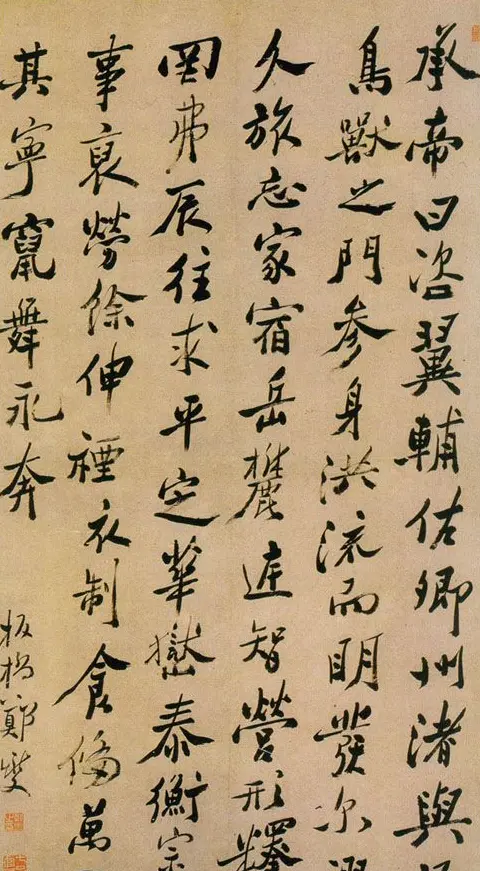 承帝曰咨翼輔佐卿州渚與
鳥獸之門參身洪流而明發尔
久旅忘家宿岳麓庭智營形
罔弗辰往求平定華嶽泰衡宗
事裒勞餘伸禋衣制食備萬
其寧竄舞永奔
板橋鄭燮